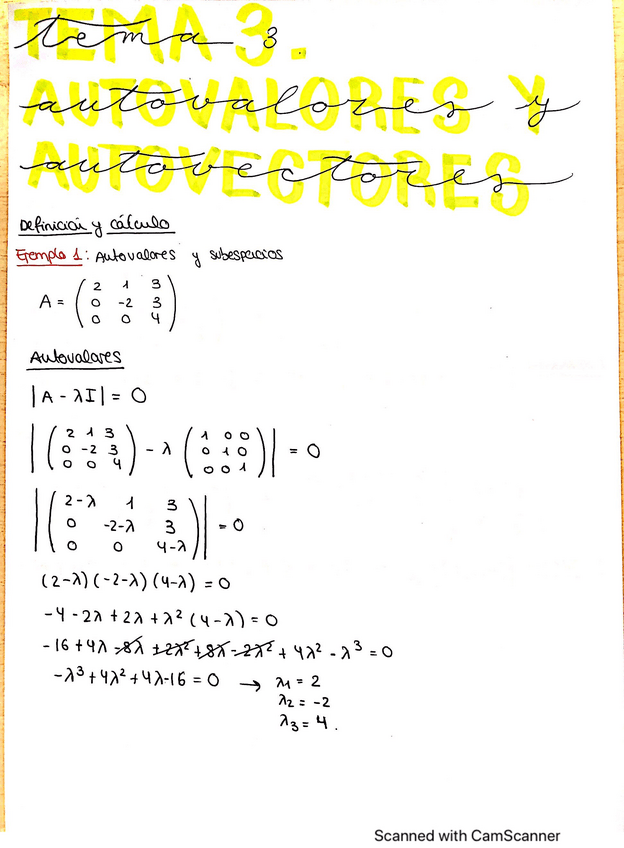 tema 3.
TEMA 3.
autovalores y
AUTOVALORES Y
autovectores
AUTOVECTORES
Definición y cálculo
Ejemplo 1: Autovalores y subespacios
A = ( 2 1 3
0 -2 3
0 0 4 )
Autovalores
|A - λI| = 0
| ( 2 1 3
0 -2 3
0 0 4 ) - λ ( 1 0 0
0 1 0
0 0 1 ) | = 0
| ( 2-λ 1 3
0 -2-λ 3
0 0 4-λ ) | = 0
(2-λ)(-2-λ)(4-λ) = 0
-4 - 2λ + 2λ + λ² (4-λ) = 0
-16 + 4λ -8λ +2λ² +8λ -2λ² + 4λ² - λ³ = 0
-λ³ + 4λ² + 4λ - 16 = 0 → λ1 = 2
λ2 = -2
λ3 = 4.
Scanned with CamScanner